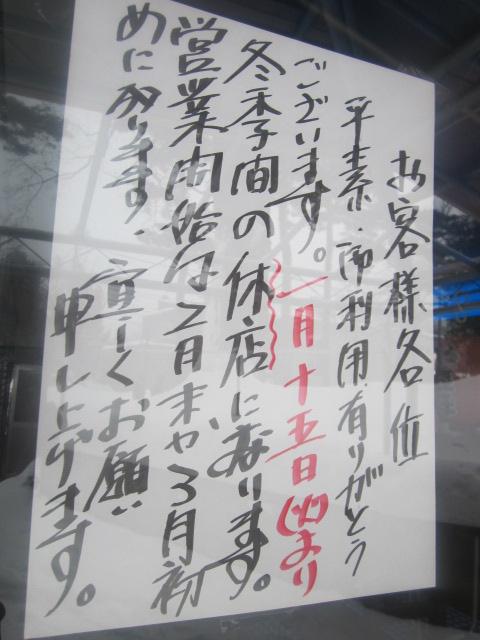 お客様各位
平素、御利用、有りがとう
ございます。一月十五日(火)より
冬季間の休店になります。
営業開始は2月末か3月初
めになります、宜しくお願い
申し上げます。